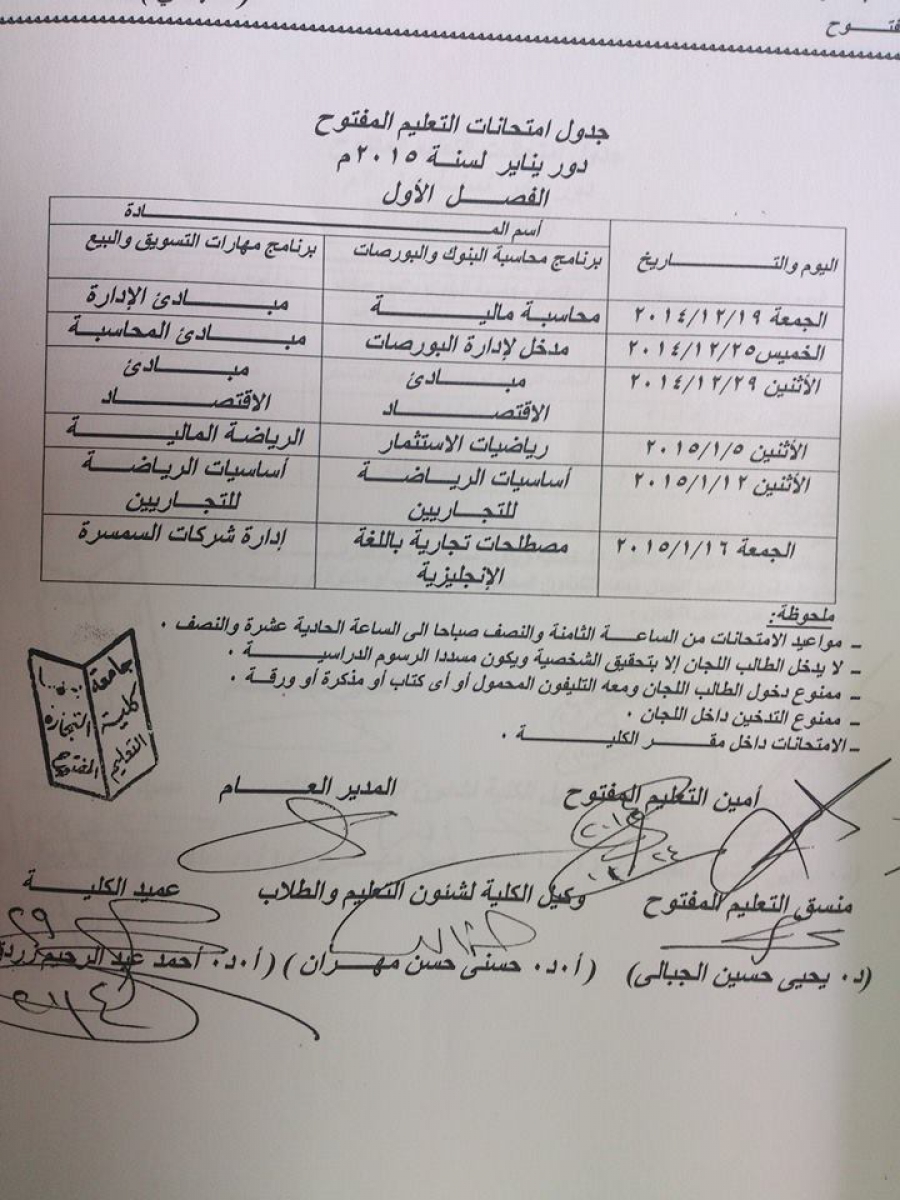 فتـــوح
جدول امتحانات التعليم المفتوح
دور يناير لسنة ٢٠١٥م
الفصل الأول
اليوم والتـــاريخ
أسم المـــادة
برنامج محاسبة البنوك والبورصات
برنامج مهارات التسويق والبيع
الجمعة ٢٠١٤/١٢/١٩ محاسبة مالية مبادئ الإدارة
الخميس ٢٠١٤/١٢/٢٥ مدخل لإدارة البورصات مبادئ المحاسبة
الأثنين ٢٠١٤/١٢/٢٩ مبادئ الاقتصاد مبادئ الاقتصاد
الأثنين ٢٠١٥/١/٥ رياضيات الاستثمار الرياضة المالية
الأثنين ٢٠١٥/١/١٢ أساسيات الرياضة للتجاريين أساسيات الرياضة للتجاريين
الجمعة ٢٠١٥/١/١٦ مصطلحات تجارية باللغة الإنجليزية إدارة شركات السمسرة
ملحوظة:
ـ مواعيد الامتحانات من الساعة الثامنة والنصف صباحا الى الساعة الحادية عشرة والنصف .
ـ لا يدخل الطالب اللجان إلا بتحقيق الشخصية ويكون مسددا الرسوم الدراسية .
ـ ممنوع دخول الطالب اللجان ومعه التليفون المحمول أو أى كتاب أو مذكرة أو ورقة .
ـ ممنوع التدخين داخل اللجان .
ـ الامتحانات داخل مقر الكلية .
جامعة
كلية التجارة
التعليم المفتوح
أمين التعليم المفتوح
المدير العام
منسق التعليم المفتوح
وكيل الكلية لشئون التعليم والطلاب
عميد الكلية
(د. يحيى حسين الجبالى)
(أ.د. حسنى حسن مهران)
(أ.د. أحمد عبد الرحيم زردق